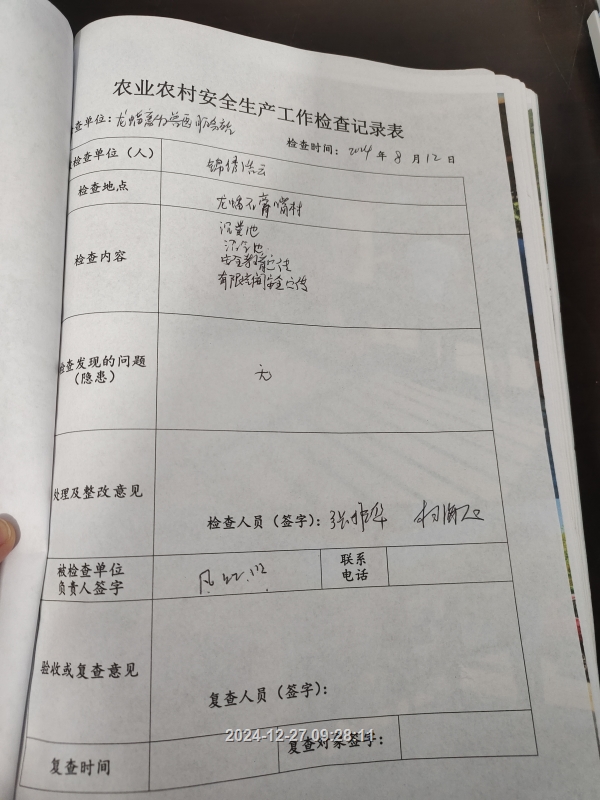 农业农村安全生产工作检查记录表
查单位:龙蟠
检查时间: 2024 年 8 月 12 日
检查单位(人)
锦绣浩云
检查地点
龙蟠石膏嘴村
检查内容
沉粪池
沉淀池
安全教育宣传
有限空间安全宣传
检查发现的问题
(隐患)
无
处理及整改意见
检查人员(签字):
被检查单位
负责人签字
联系
电话
验收或复查意见
复查人员(签字):
复查时间
复查对象签字:
2024-12-27 09:28:11